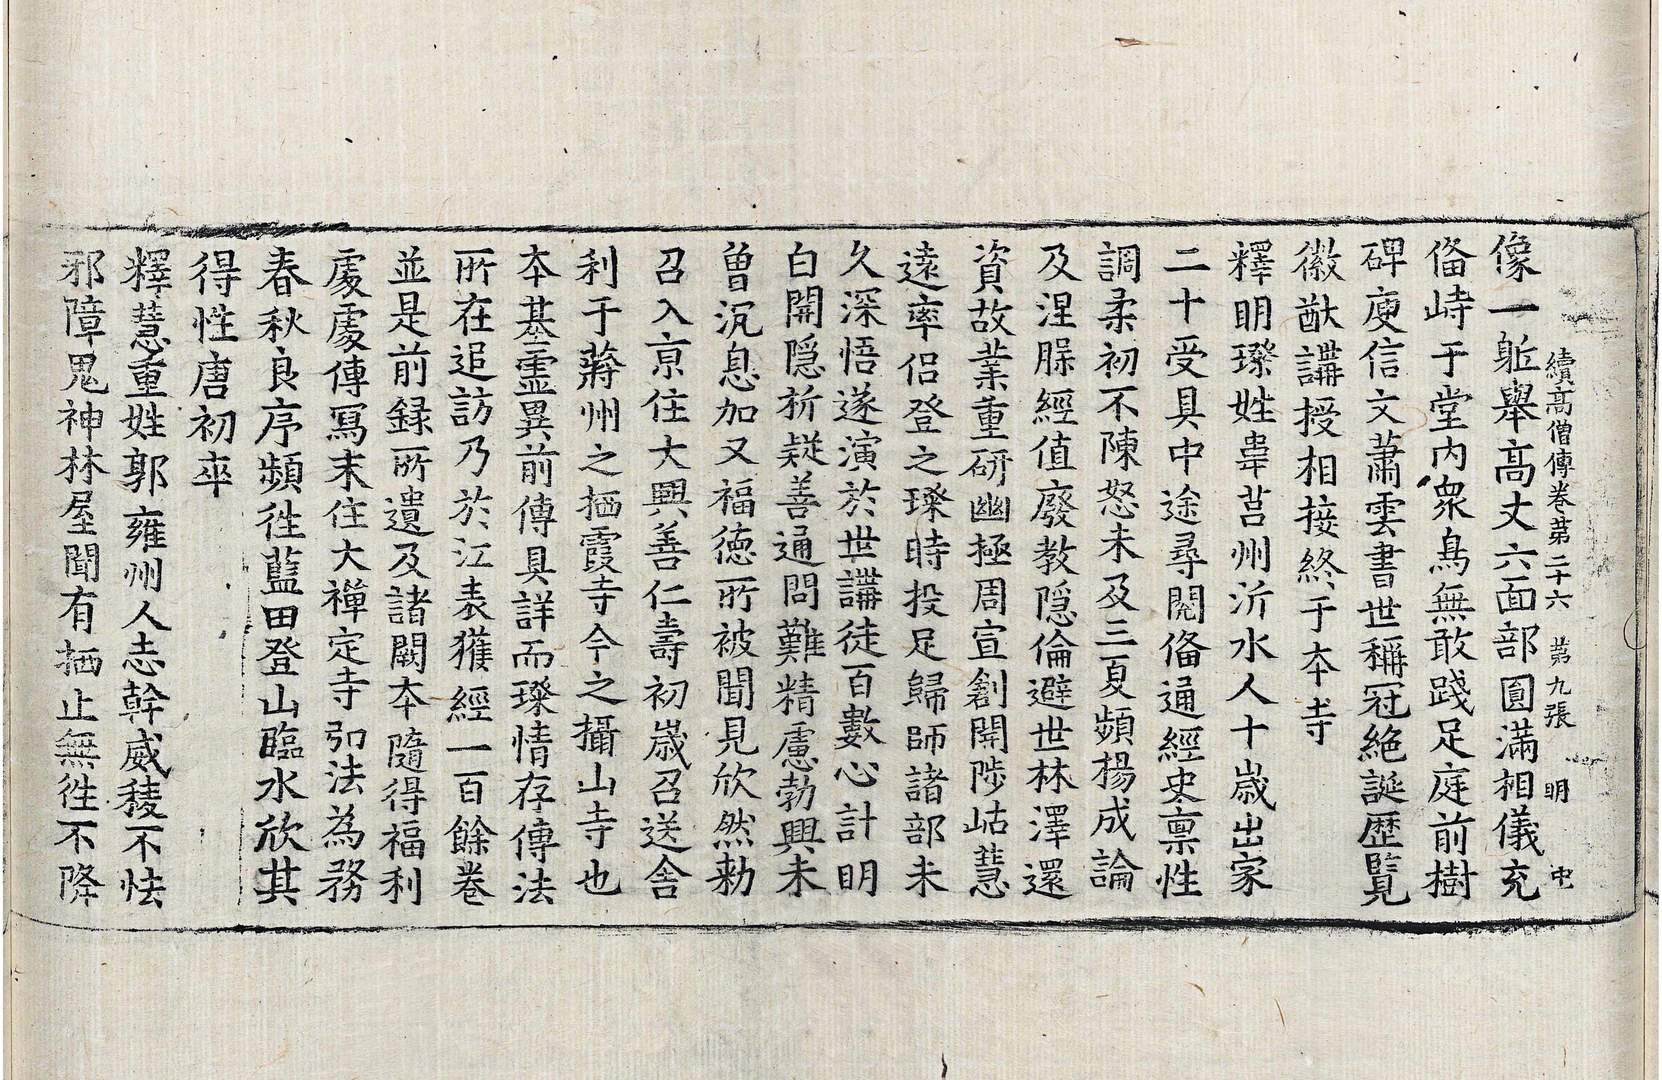 續高僧傳卷第二十六 第九張 明 中
像一軀舉高丈六面部圓滿相儀充
俻峙于堂内衆鳥無敢踐足庭前樹
碑庾信文蕭雲書世稱冠絶誕歷覽
徽猷講授相接終于夲寺
釋明璨姓韋莒州沂水人十歳出家
二十受具中途尋閱俻通經史稟性
調柔初不陳怒未及三夏頻揚成論
及涅縢經值廢教隠倫避世林澤還
資故業重研幽極周宣創開陟岵慧
遠率侣登之璨時投足歸師諸部未
久深悟遂演於世講徒百數心計明
白開隠析疑善通問難精慮勃興未
曽沉息加又福徳所被聞見欣然勅
召入京住大興善仁壽初歳召送舎
利于蔣州之栖霞寺今之攝山寺也
夲基霊異前傳具詳而璨情存傳法
所在追訪乃於江表獲經一百餘卷
並是前録所遺及諸闕夲隨得福利
處處傳寫末住大禪定寺弘法為務
春秋良序頻徃藍田登山臨水欣其
得性唐初卒
釋慧重姓郭雍州人志幹威稜不怯
邪障鬼神林屋聞有栖止無徃不降